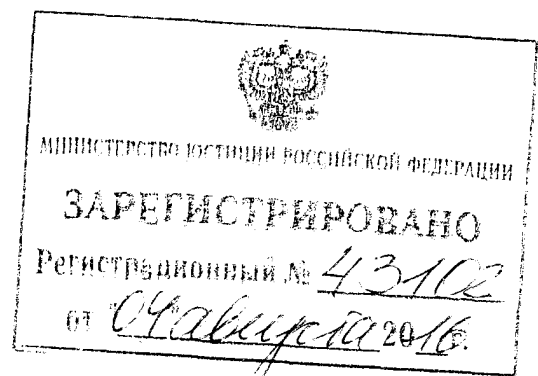 МИНИСТЕРСТВО ЮСТИЦИИ РОССИЙСКОЙ ФЕДЕРАЦИИ
ЗАРЕГИСТРИРОВАНО
Регистрационный № 43102
от "04" августа 2016 г.